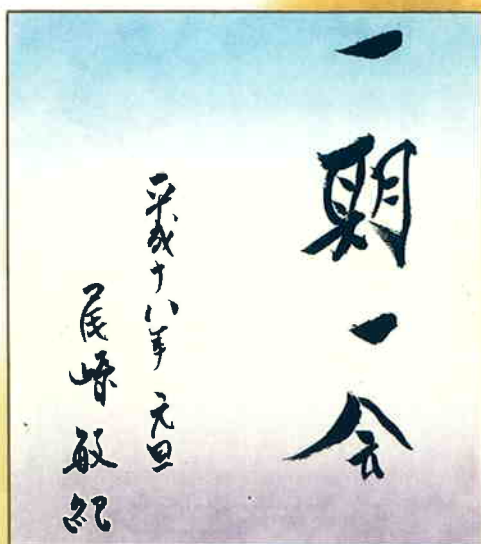 一期一会
平成十八年 元旦
尾崎敏紀